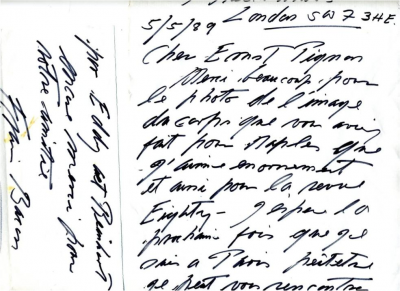 London SW7 3HE.
5/5/89
Cher Ernest Pignon
Merci beaucoup pour
la photo de l'image
du corps que vous avez
fait pour Naples que
j'aime enormement
et aussi pour la revue
Eighty - J'espere la
prochain fois que je
suis a Paris peut etre
je peut vous rencontre
pour Eddy
Merci pour
votre amitié